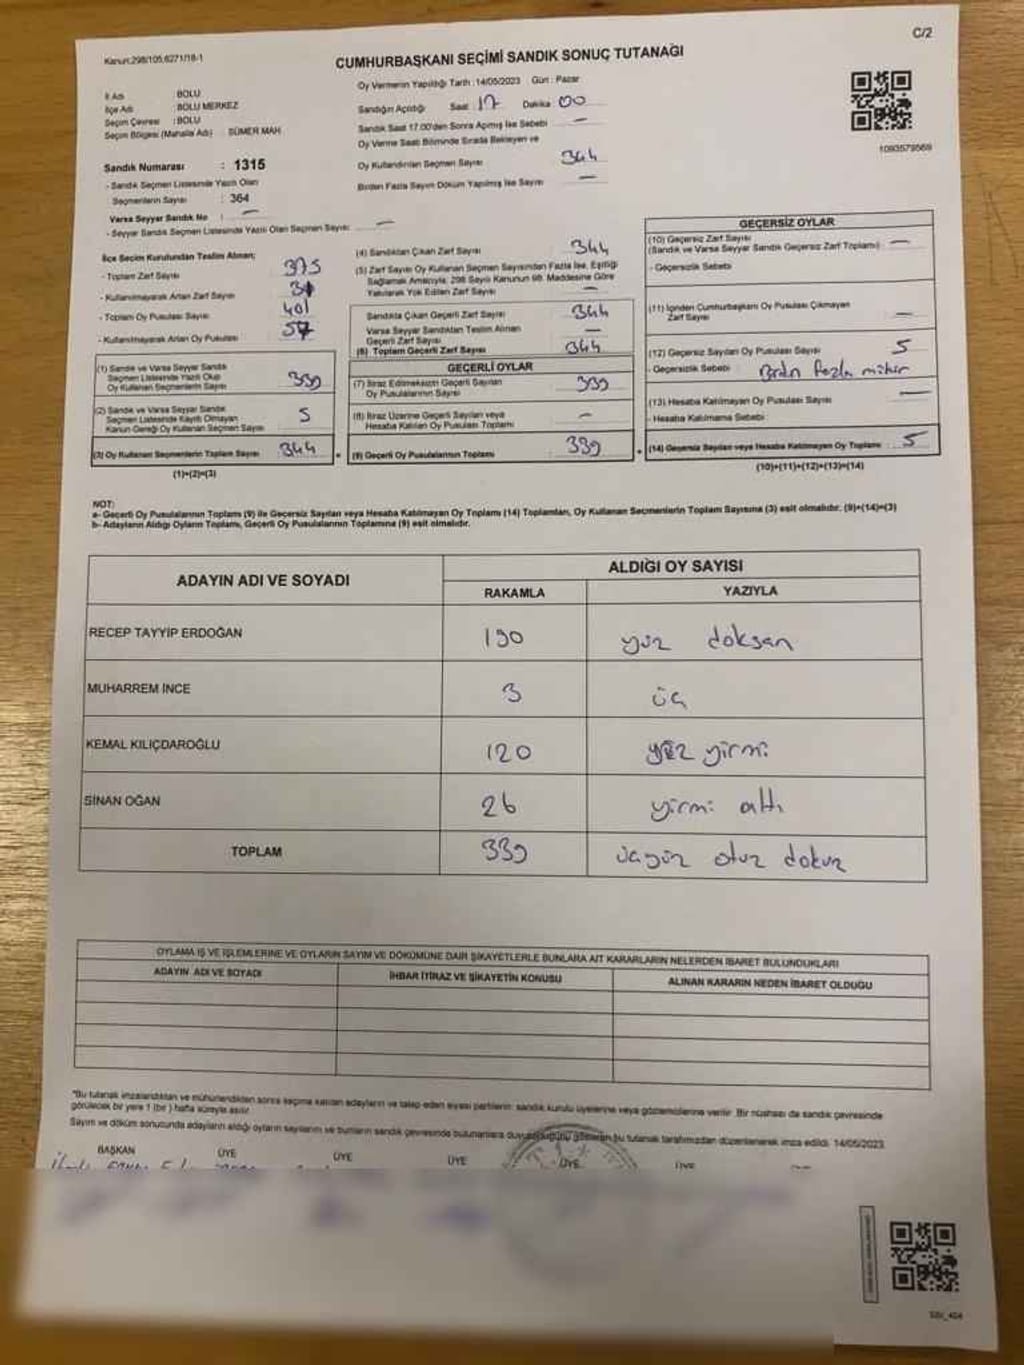 C/2
Kanun:298/105,6271/18-1
CUMHURBAŞKANI SEÇİMİ SANDIK SONUÇ TUTANAĞI
İl Adı : BOLU
İlçe Adı : BOLU MERKEZ
Seçim Çevresi : BOLU
Seçim Bölgesi (Mahalle Adı) : SÜMER MAH
Sandık Numarası : 1315
- Sandık Seçmen Listesinde Yazılı Olan
Seçmenlerin Sayısı : 364
Varsa Seyyar Sandık No : —
- Seyyar Sandık Seçmen Listesinde Yazılı Olan Seçmen Sayısı: —
Oy Vermenin Yapıldığı Tarih : 14/05/2023 Gün : Pazar
Sandığın Açıldığı Saat : 17 Dakika 00
Sandık Saat 17.00'den Sonra Açılmış İse Sebebi —
Oy Verme Saati Bitiminde Sırada Bekleyen ve
Oy Kullandırılan Seçmen Sayısı 344
Birden Fazla Sayım Döküm Yapılmış İse Sayısı —
1093579569
İlçe Seçim Kurulundan Teslim Alınan;
- Toplam Zarf Sayısı 375
- Kullanılmayarak Artan Zarf Sayısı 31
- Toplam Oy Pusulası Sayısı 401
- Kullanılmayarak Artan Oy Pusulası 57
(1) Sandık ve Varsa Seyyar Sandık
Seçmen Listesinde Yazılı Olup
Oy Kullanan Seçmenlerin Sayısı 339
(2) Sandık ve Varsa Seyyar Sandık
Seçmen Listesinde Kayıtlı Olmayan
Kanun Gereği Oy Kullanan Seçmen Sayısı 5
(3) Oy Kullanan Seçmenlerin Toplam Sayısı 344
(1)+(2)=(3)
(4) Sandıktan Çıkan Zarf Sayısı 344
(5) Zarf Sayısı Oy Kullanan Seçmen Sayısından Fazla İse, Eşitliği
Sağlamak Amacıyla, 298 Sayılı Kanunun 98. Maddesine Göre
Yakılarak Yok Edilen Zarf Sayısı —
Sandıkta Çıkan Geçerli Zarf Sayısı 344
Varsa Seyyar Sandıktan Teslim Alınan
Geçerli Zarf Sayısı —
(6) Toplam Geçerli Zarf Sayısı 344
GEÇERLİ OYLAR
(7) İtiraz Edilmeksizin Geçerli Sayılan
Oy Pusulaları Sayısı 339
(8) İtiraz Üzerine Geçerli Sayılan veya
Hesaba Katılan Oy Pusulası Toplamı —
(9) Geçerli Oy Pusulalarının Toplamı 339
GEÇERSİZ OYLAR
(10) Geçersiz Zarf Sayısı
(Sandık ve Varsa Seyyar Sandık Geçersiz Zarf Toplamı) —
- Geçersizlik Sebebi
(11) İçinden Cumhurbaşkanı Oy Pusulası Çıkmayan
Zarf Sayısı —
(12) Geçersiz Sayılan Oy Pusulası Sayısı 5
- Geçersizlik Sebebi Birden fazla mühür
(13) Hesaba Katılmayan Oy Pusulası Sayısı —
- Hesaba Katılmama Sebebi
(14) Geçersiz Sayılan veya Hesaba Katılmayan Oy Toplamı 5
(10)+(11)+(12)+(13)=(14)
NOT:
a- Geçerli Oy Pusulalarının Toplamı (9) ile Geçersiz Sayılan veya Hesaba Katılmayan Oy Toplamı (14) Toplamları, Oy Kullanan Seçmenlerin Toplam Sayısına (3) eşit olmalıdır. (9)+(14)=(3)
b- Adayların Aldığı Oyların Toplamı, Geçerli Oy Pusulalarının Toplamına (9) eşit olmalıdır.
ADAYIN ADI VE SOYADI ALDIĞI OY SAYISI
RAKAMLA YAZIYLA
RECEP TAYYİP ERDOĞAN 190 yüz doksan
MUHARREM İNCE 3 üç
KEMAL KILIÇDAROĞLU 120 yüz yirmi
SİNAN OĞAN 26 yirmi altı
TOPLAM 339 üçyüz otuz dokuz
OYLAMA İŞ VE İŞLEMLERİNE VE OYLARIN SAYIM VE DÖKÜMÜNE DAİR ŞİKAYETLERLE BUNLARA AİT KARARLARIN NELERDEN İBARET BULUNDUKLARI
ADAYIN ADI VE SOYADI İHBAR İTİRAZ VE ŞİKAYETİN KONUSU ALINAN KARARIN NEDEN İBARET OLDUĞU
"Bu tutanak imzalandıktan ve mühürlendikten sonra seçime katılan adayların ve talep eden siyasi partilerin sandık kurulu üyelerine veya gözlemcilerine verilir. Bir nüshası da sandık çevresinde
görülecek bir yere 1 (bir) hafta süreyle asılır.
Sayım ve döküm sonucunda adayların aldığı oyların sayılarını ve bunların sandık çevresinde bulunanlara duyurulduğunu gösteren bu tutanak tarafımızdan düzenlenerek imza edildi. 14/05/2023
BAŞKAN ÜYE ÜYE ÜYE ÜYE ÜYE